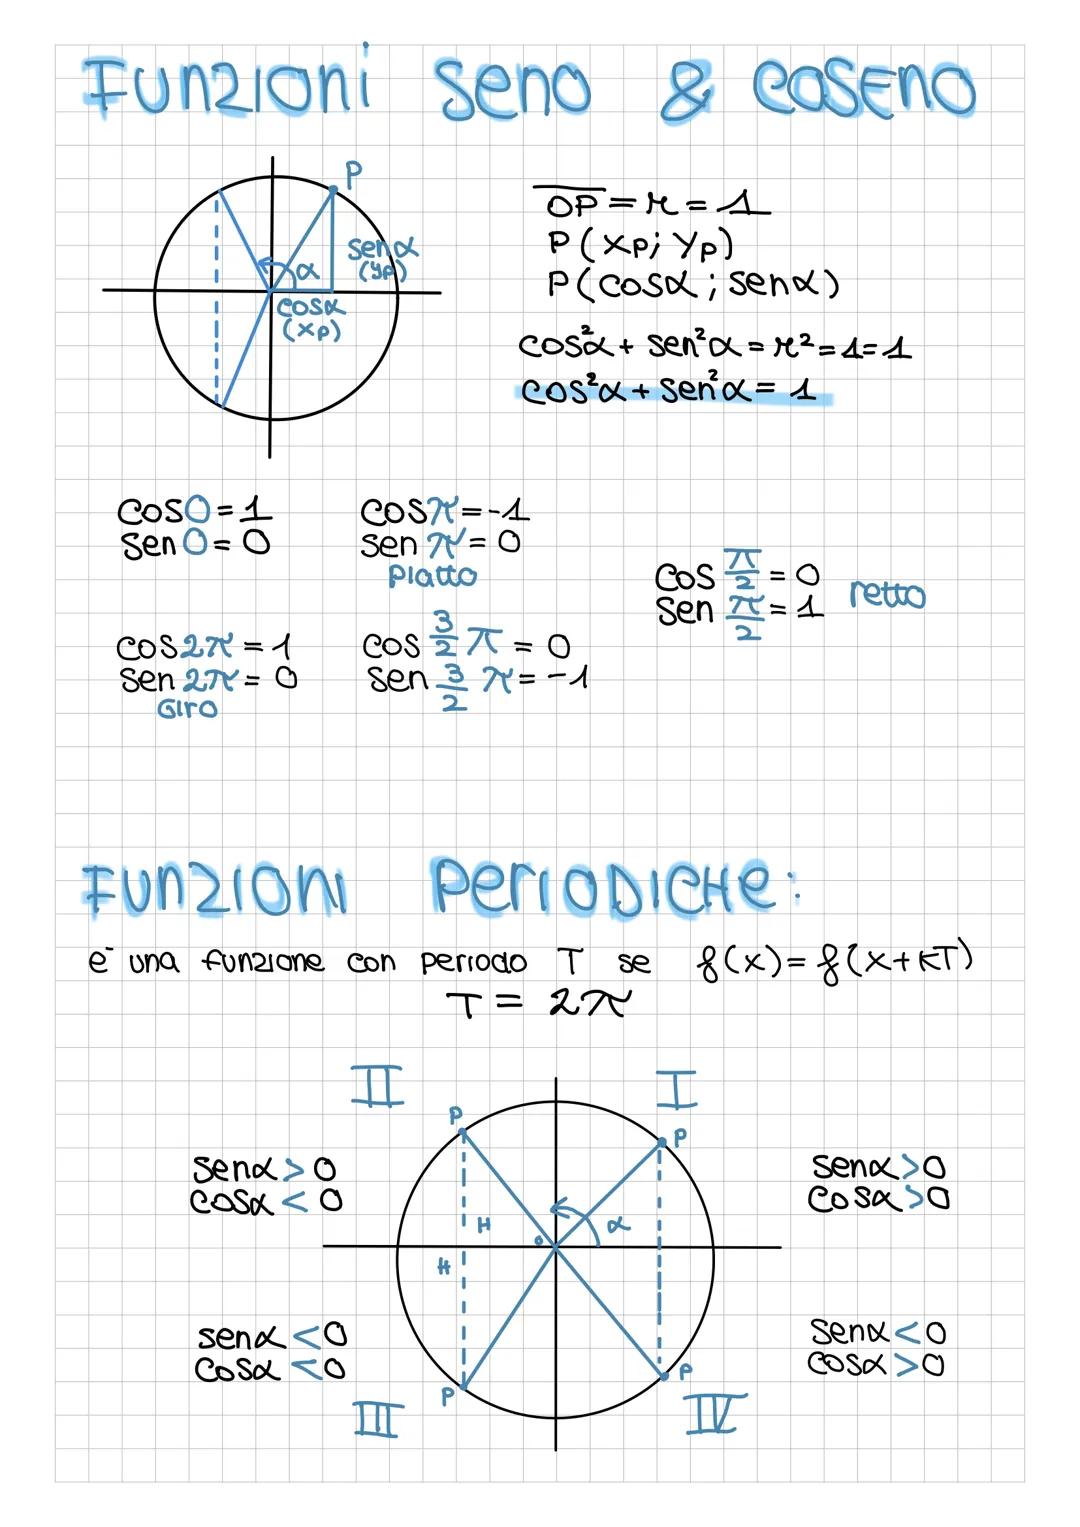 Funzioni seno & coseno
P
senα
(yp)
α
cosα
(xp)
OP = r = 1
P(xp; yp)
P(cosα; senα)
cos²α + sen²α = r² = 1 = 1
cos²α + sen²α = 1
cos0 = 1
sen0 = 0
cosπ = -1
senπ = 0
piatto
cos π/2 = 0
sen π/2 = 1
retto
cos2π = 1
sen2π = 0
Giro
cos 3/2 π = 0
sen 3/2 π = -1
Funzioni Periodiche:
è una funzione con periodo T se f(x) = f(x+kT)
T = 2π
II
I
P
P
senα > 0
cosα < 0
senα > 0
cosα > 0
H
α
o
H
senα < 0
cosα < 0
senα < 0
cosα > 0
P
P
III
IV